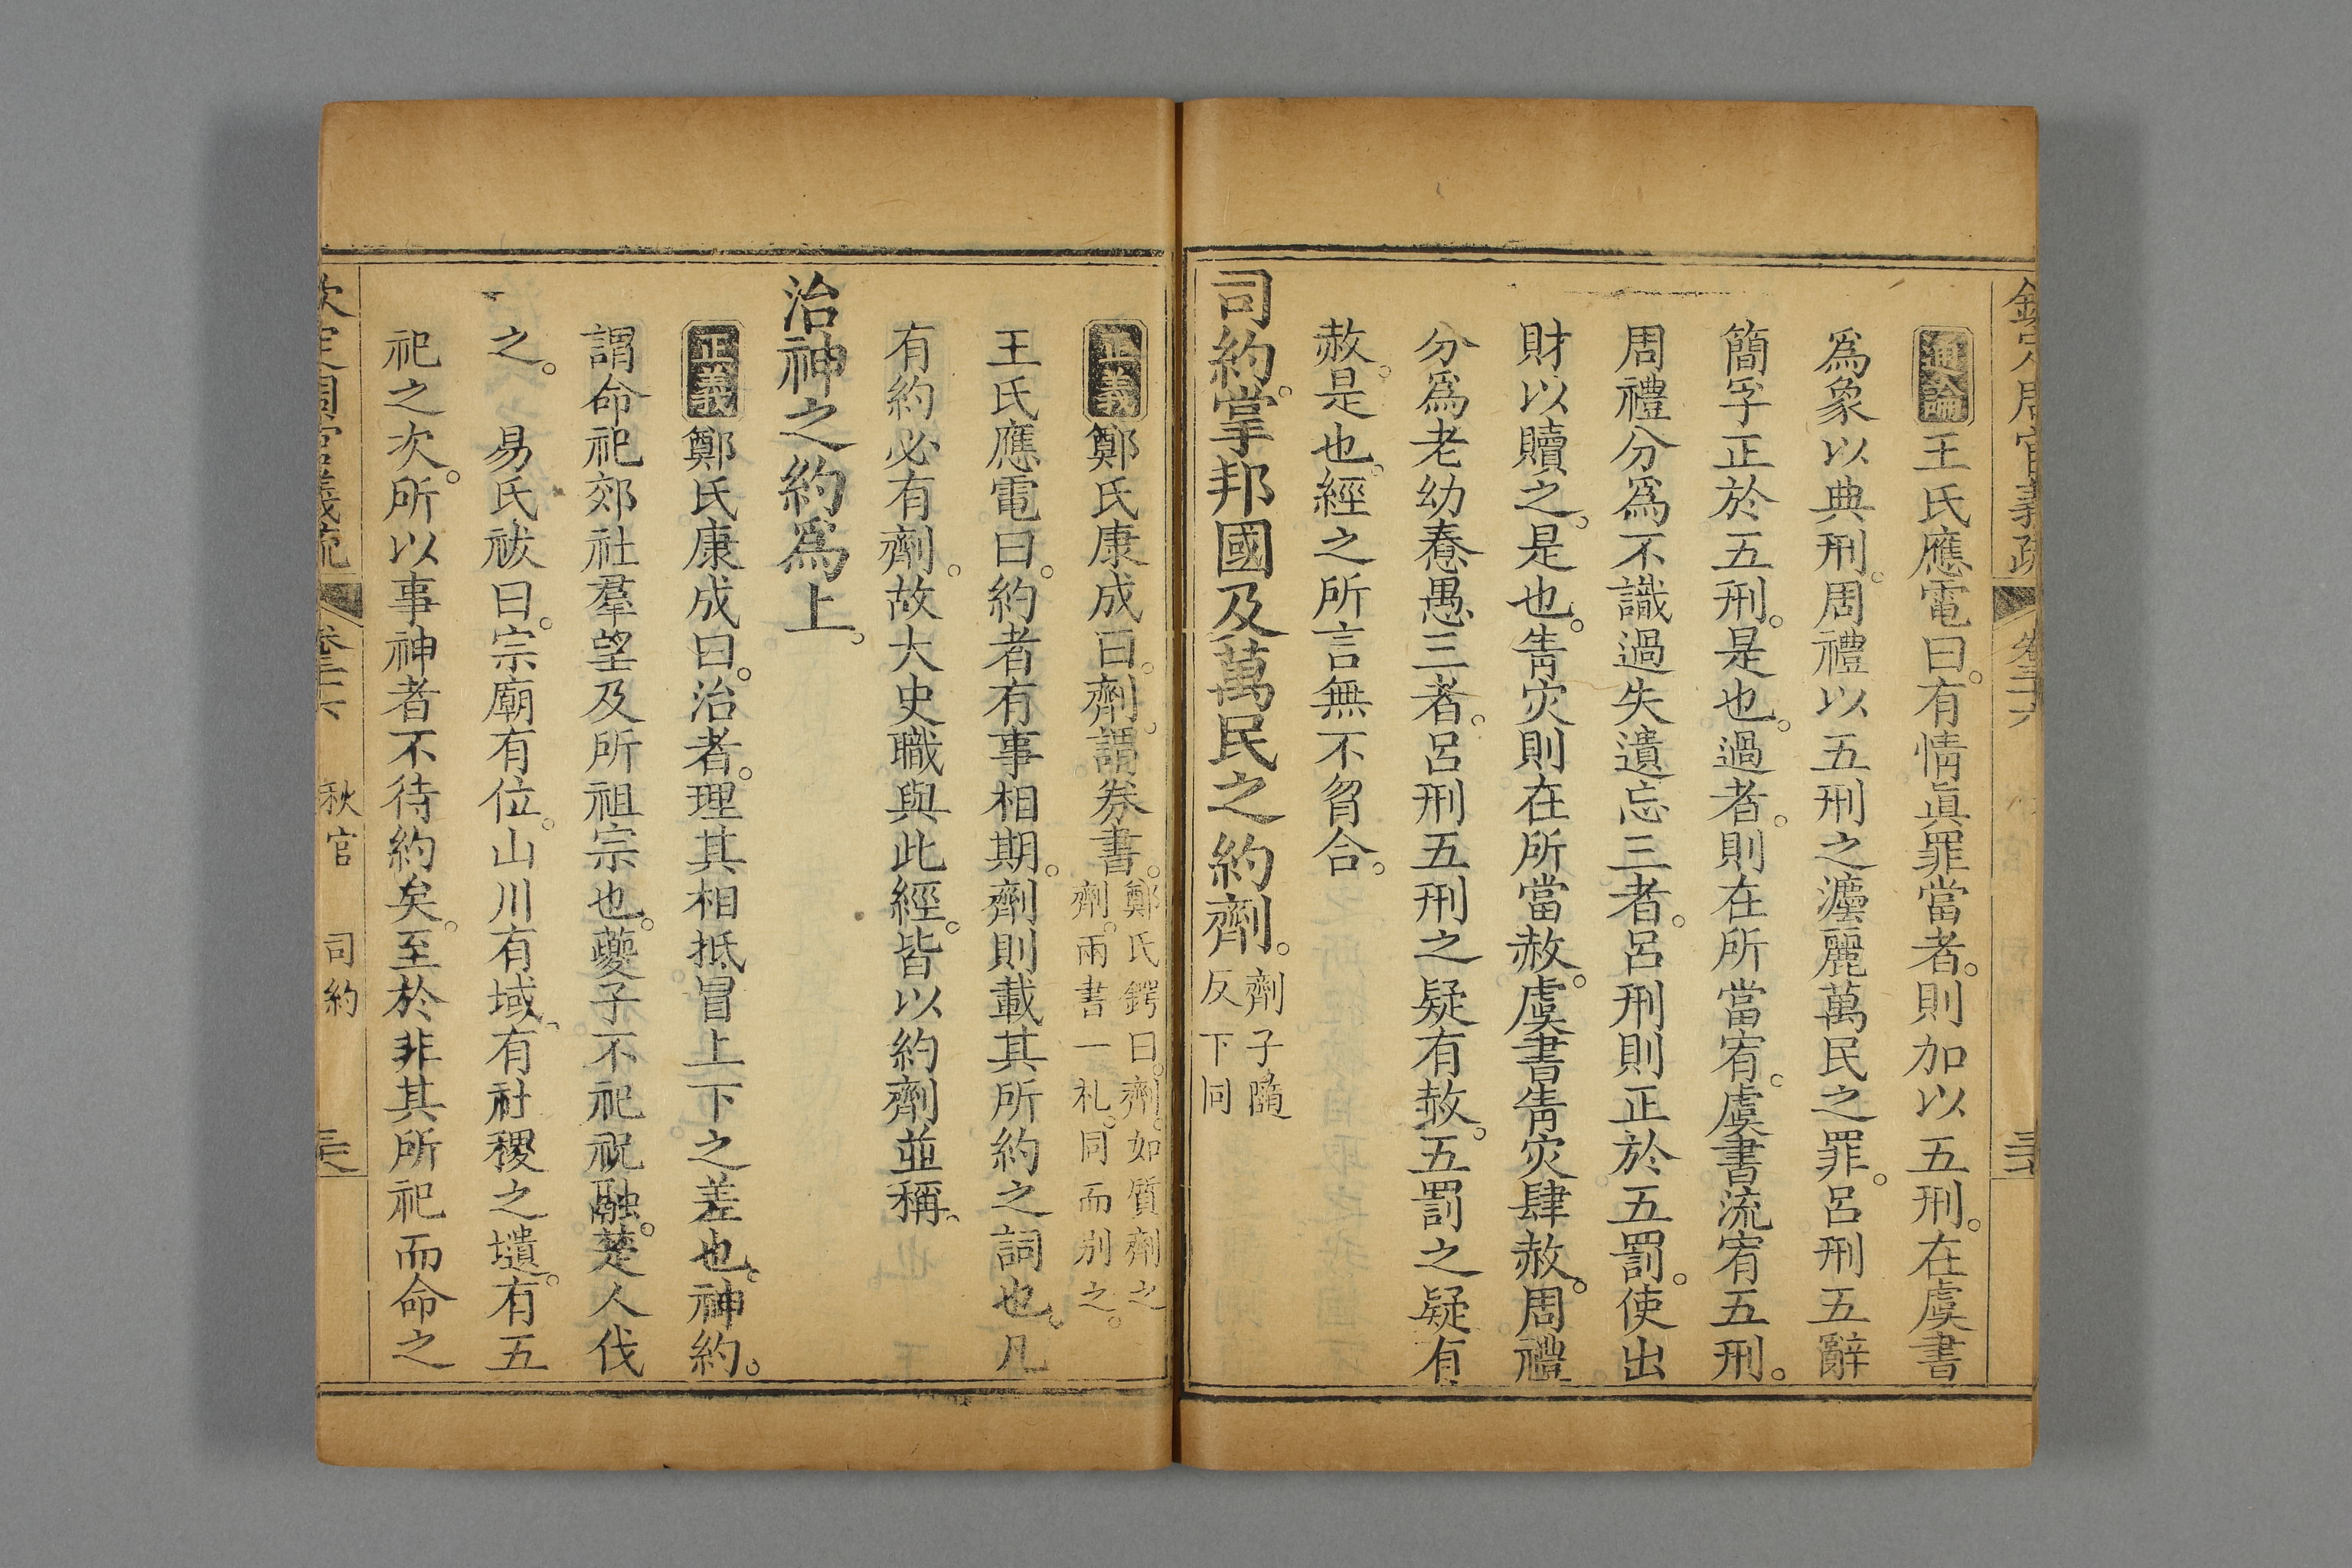 欽定周官義疏 卷三十六
通論王氏應電曰。有情眞罪當者。則加以五刑。在虞書
爲象以典刑。周禮以五刑之灋麗萬民之罪。呂刑五辭
簡孚正於五刑。是也。過者。則在所當宥。虞書流宥五刑。
周禮分爲不識過失遺忘三者。呂刑則正於五罰。使出
財以贖之。是也。眚灾則在所當赦。虞書眚灾肆赦。周禮
分爲老幼惷愚三者。呂刑五刑之疑有赦。五罰之疑有
赦。是也。經之所言無不脗合。
司約。掌邦國及萬民之約劑。劑子隨
反下同
正義鄭氏康成曰。劑。謂券書。鄭氏鍔曰。劑。如質劑之
劑。兩書一札。同而別之。
王氏應電曰。約者有事相期。劑則載其所約之詞也。凡
有約必有劑。故大史職與此經。皆以約劑並稱。
治神之約爲上。
正義鄭氏康成曰。治者。理其相抵冒上下之差也。神約。
謂命祀郊社羣望及所祖宗也。夔子不祀祝融。楚人伐
之。 易氏祓曰。宗廟有位。山川有域。有社稷之壝。有五
祀之次。所以事神者不待約矣。至於非其所祀而命之
欽定周官義疏 卷三十六 秋官 司約